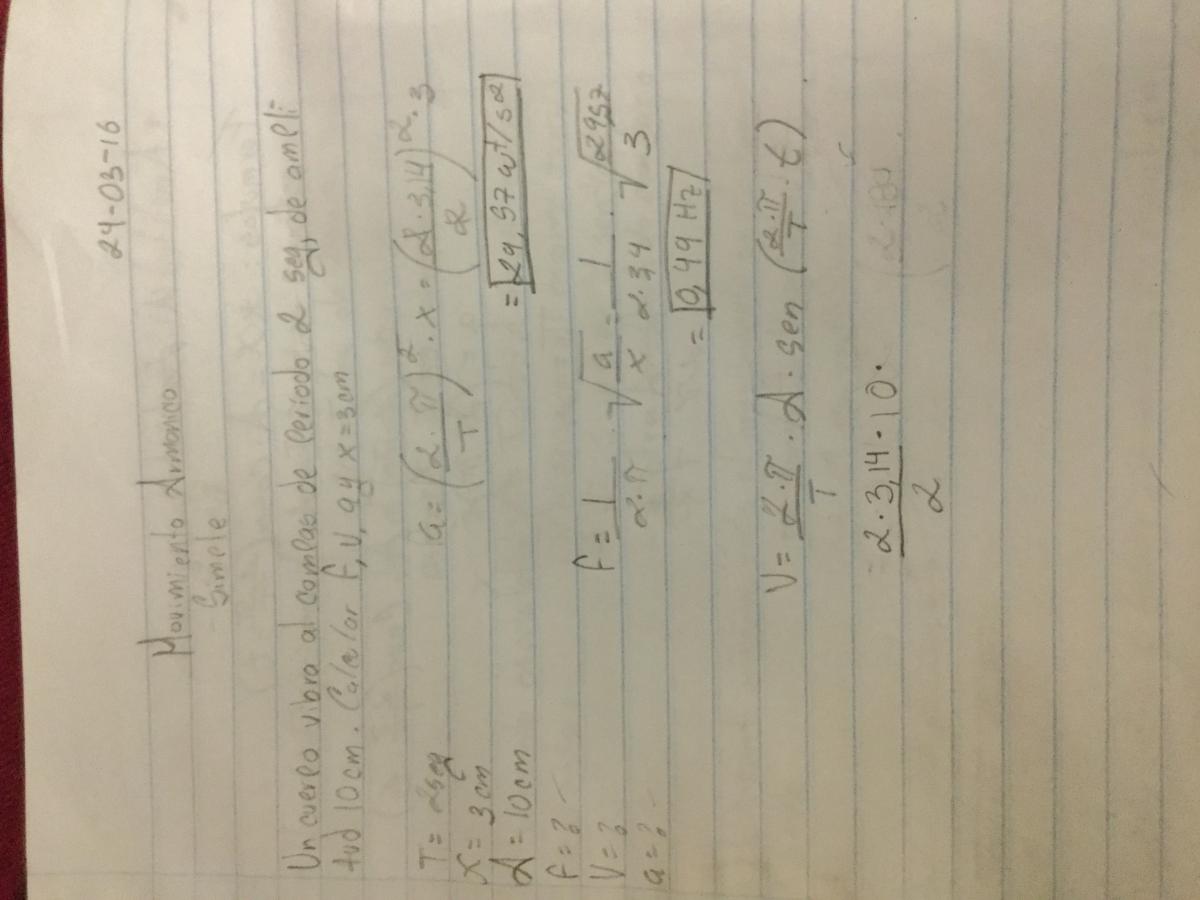 24-03-16
Movimiento Armonico
Simple
Un cuerpo vibra al compas de periodo 2 seg, de ampli
tud 10cm. Calcular F, V, a y x=3cm
T= 2seg
X= 3cm
A= 10cm
F=?
V=?
a=?
a= (2·π/T)²·x = (2·3,14/2)²·3
= 29,57 wt/s²
F= 1/2·π · √a/x = 1/2·3,4 · √29,57/3
= 0,49 Hz
V= 2·π/T · A · sen (2·π/T · t)
= 2·3,14/2 · 10·